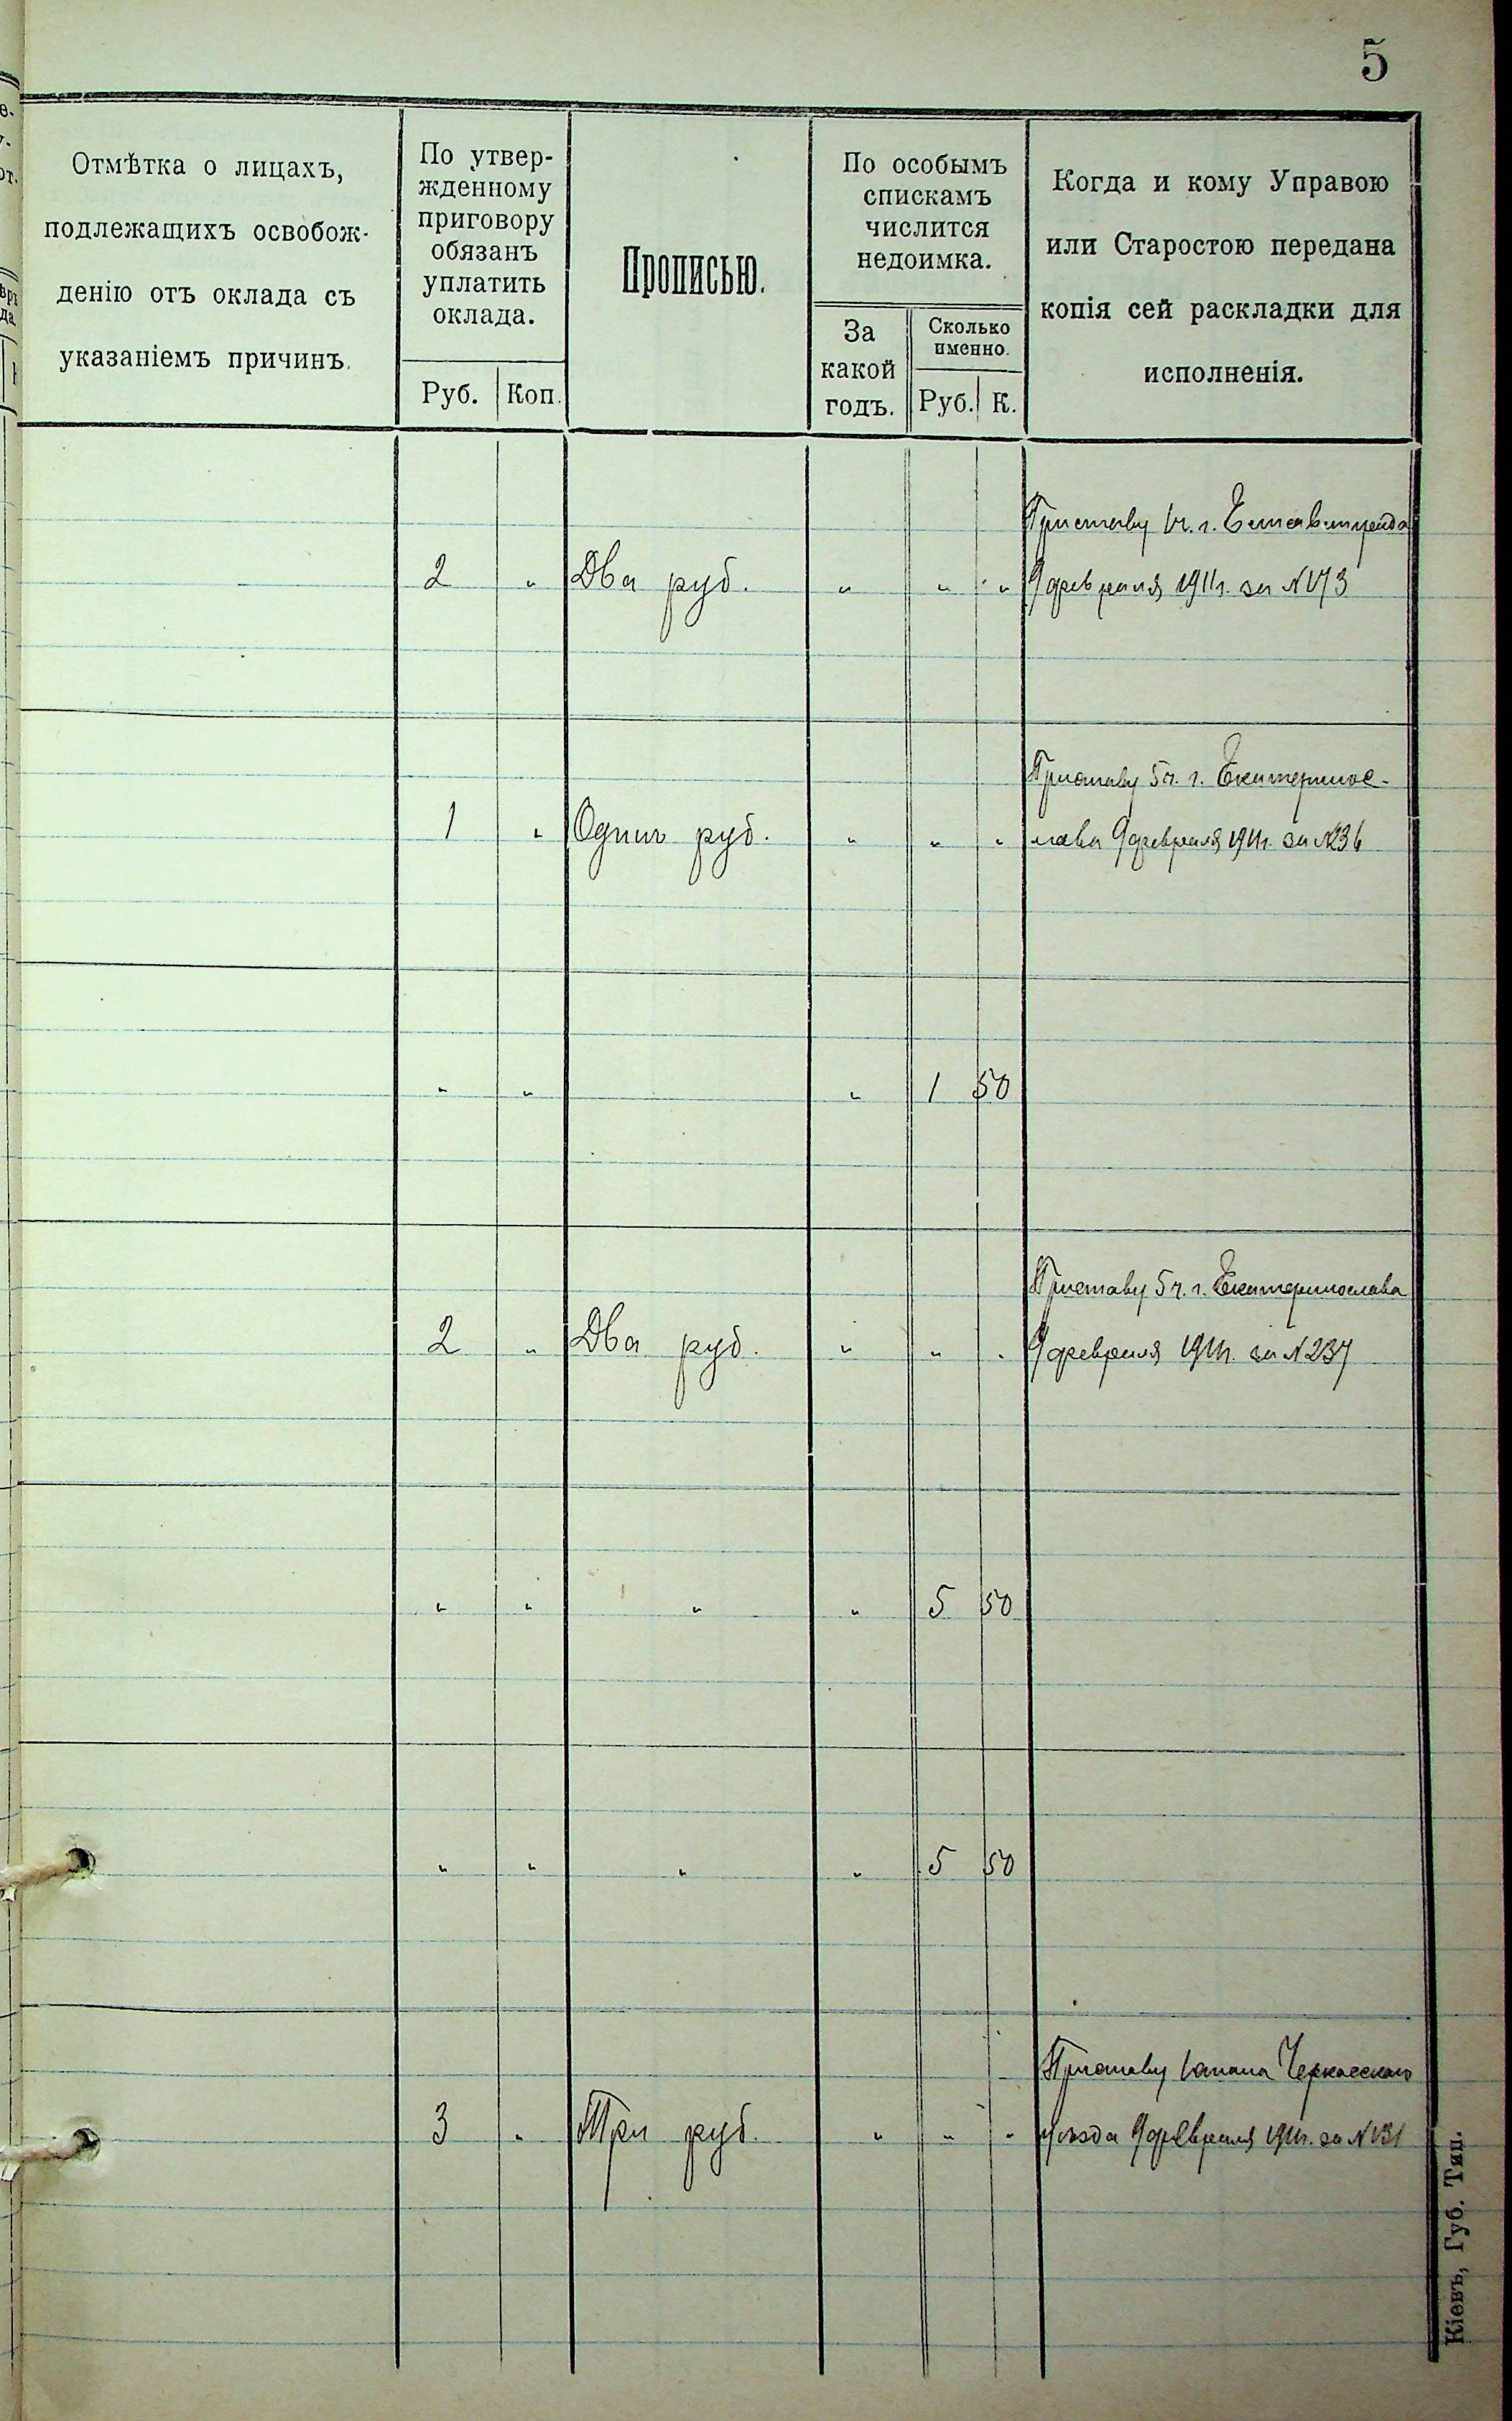 5
Отмѣтка о лицахъ,
подлежащихъ освобож-
денію отъ оклада съ
указаніемъ причинъ.
По утвер-
жденному
приговору
обязанъ
уплатить
оклада.
Руб. Коп.
Прописью.
По особымъ
спискамъ
числится
недоимка.
За
какой
годъ.
Сколько
именно.
Руб. К.
Когда и кому Управою
или Старостою передана
копія сей раскладки для
исполненія.
Приставу 1 ч. г. Елисаветграда
2 " Два руб. " " " 9 февраля 1911 г. за N 173
Приставу 5 ч. г. Екатеринос-
1 " Одинъ руб. " " " лава 9 февраля 1911 г. за N 236
" " " 1 50
Приставу 5 ч. г. Екатеринослава
2 " Два руб. " " " 9 февраля 1911 г. за N 237
" " " " 5 50
" " " " 5 50
Приставу 1 стана Черкасскаго
3 " Три руб. " " " уѣзда 9 февраля 1911 г. за N 131
Кіевъ, Губ. Тип.